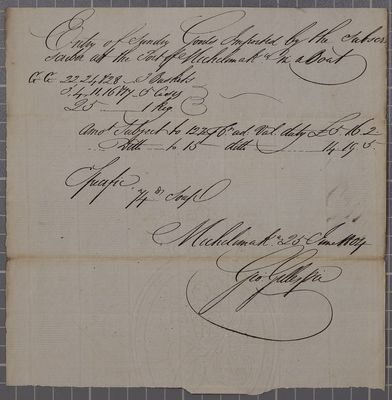 Entry of Sundry Goods Imported by the Subscr
iber at the Port of Michilimak in a Boat
G.G. 22.24.28 3 Baskets
3.4.11.16.17 5 Cases
25 1 Keg
Amot Subject to 12½ PCt ad. Val. duty £ 5.16.2
Ditto to 15 ditto 14.19.5
Specific
74 lb Soap
Michilimak 25 June 1804
Geo. Gillespie